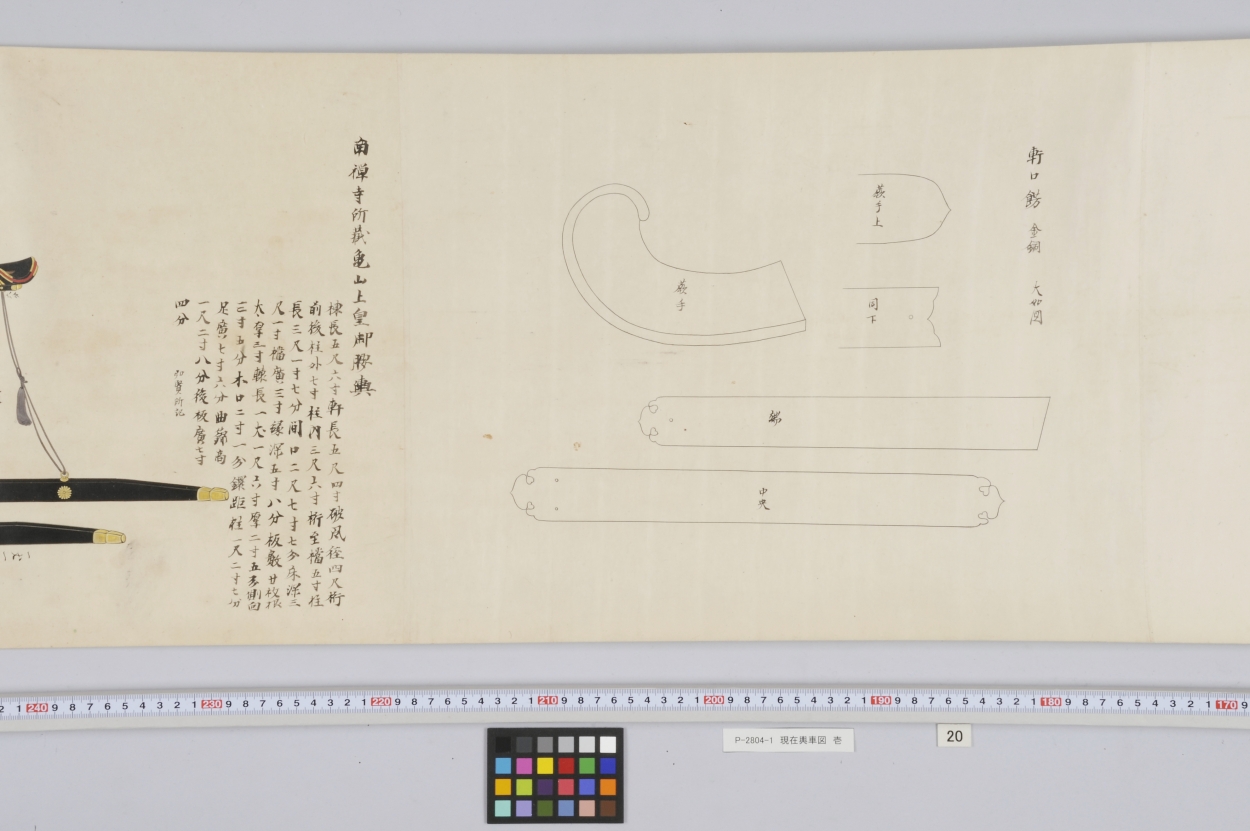 金銅
大如図
蕨手上
同下
蕨手
中央
南禅寺所蔵亀山上皇御腰輿
棟長五尺六寸軒長五尺四寸破風径四尺桁
前後柱外七寸柱間三尺六寸桁至檣五寸柱
長三尺一寸七分間口二尺七寸七分床深三
尺一寸檣廣三寸縁深五寸八分板敷廿枚
三寸轅長一丈一尺六寸厚二寸五分
三寸五分木口二寸一分 距柱一尺二寸七分
足廣七寸六分曲 高
一尺二寸八分後板廣七寸
四分
240 9 8 7 6 5 4 3 2 1 230 9 8 7 6 5 4 3 2 1 220 9 8 7 6 5 4 3 2 1 210 9 8 7 6 5 4 3 2 1 200 9 8 7 6 5 4 3 2 1 190 9 8 7 6 5 4 3 2 1 180 9 8 7 6 5 4 3 2 1 170 9
P-2804-1 現在輿車図 壱
20